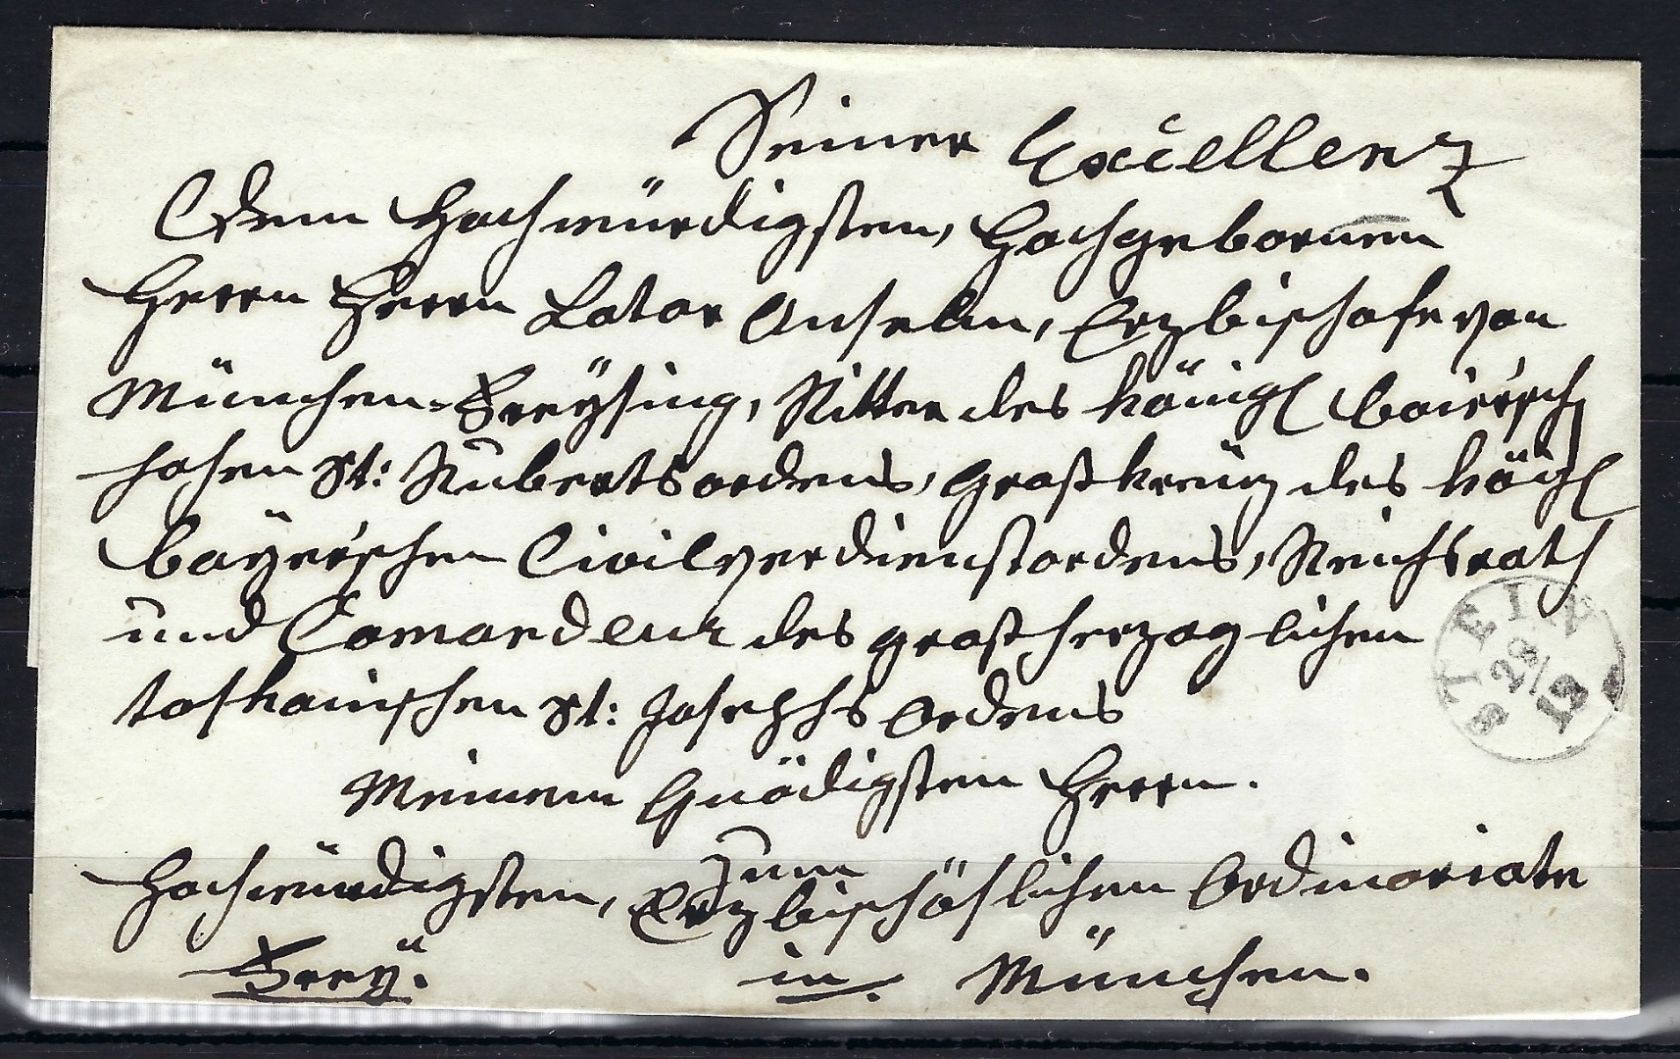 Seiner Excellenz
Dem Hochwürdigsten, Hochgebornen
Herrn Herrn Lotar Anselm, Erzbischofe von
München-Freÿsing, Ritter des königl baierisch
hohen St: Huberts ordens, Großkreuz des kögl
bayerischen Civilverdienstordens, Reichsrath
und Comandeur des großherzoglichen
toskanischen St: Josephs Ordens
Meinem Gnädigsten Herrn.
Zum
Hochwürdigsten, Erzbischöflichen Ordinariate
Freÿ. in München.
STEIN
29/12